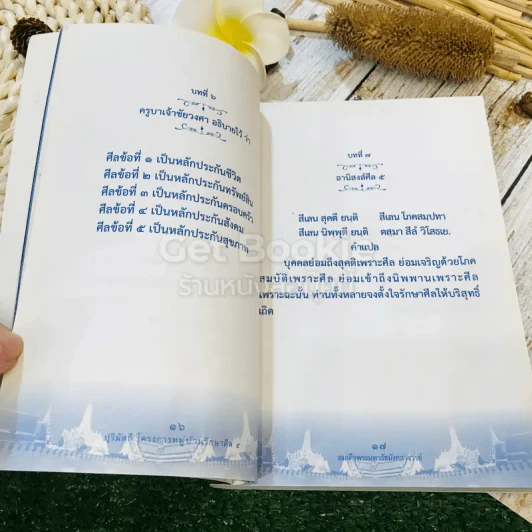 บทที่ ๖
ครูบาเจ้าชัยวงศา อธิบายไว้ ว่า
ศีลข้อที่ ๑ เป็นหลักประกันชีวิต
ศีลข้อที่ ๒ เป็นหลักประกันทรัพย์สิน
ศีลข้อที่ ๓ เป็นหลักประกันครอบครัว
ศีลข้อที่ ๔ เป็นหลักประกันสังคม
ศีลข้อที่ ๕ เป็นหลักประกันสุขภาพ
๑๖
ปุริมัสธี โครงการหมู่บ้านรักษาศีล ๕
บทที่ ๗
อานิสงส์ศีล ๕
สีเลน สุคตึ ยนฺติ สีเลน โภคสมฺปทา
สีเลน นิพฺพุตึ ยนฺติ ตสฺมา สีลํ วิโสธเย.
คำแปล
บุคคลย่อมถึงสุคติเพราะศีล ย่อมเจริญด้วยโภค
สมบัติเพราะศีล ย่อมเข้าถึงนิพพานเพราะศีล
เพราะฉะนั้น ท่านทั้งหลายจงตั้งใจรักษาศีลให้บริสุทธิ์
เถิด
๑๗
Get Bookie